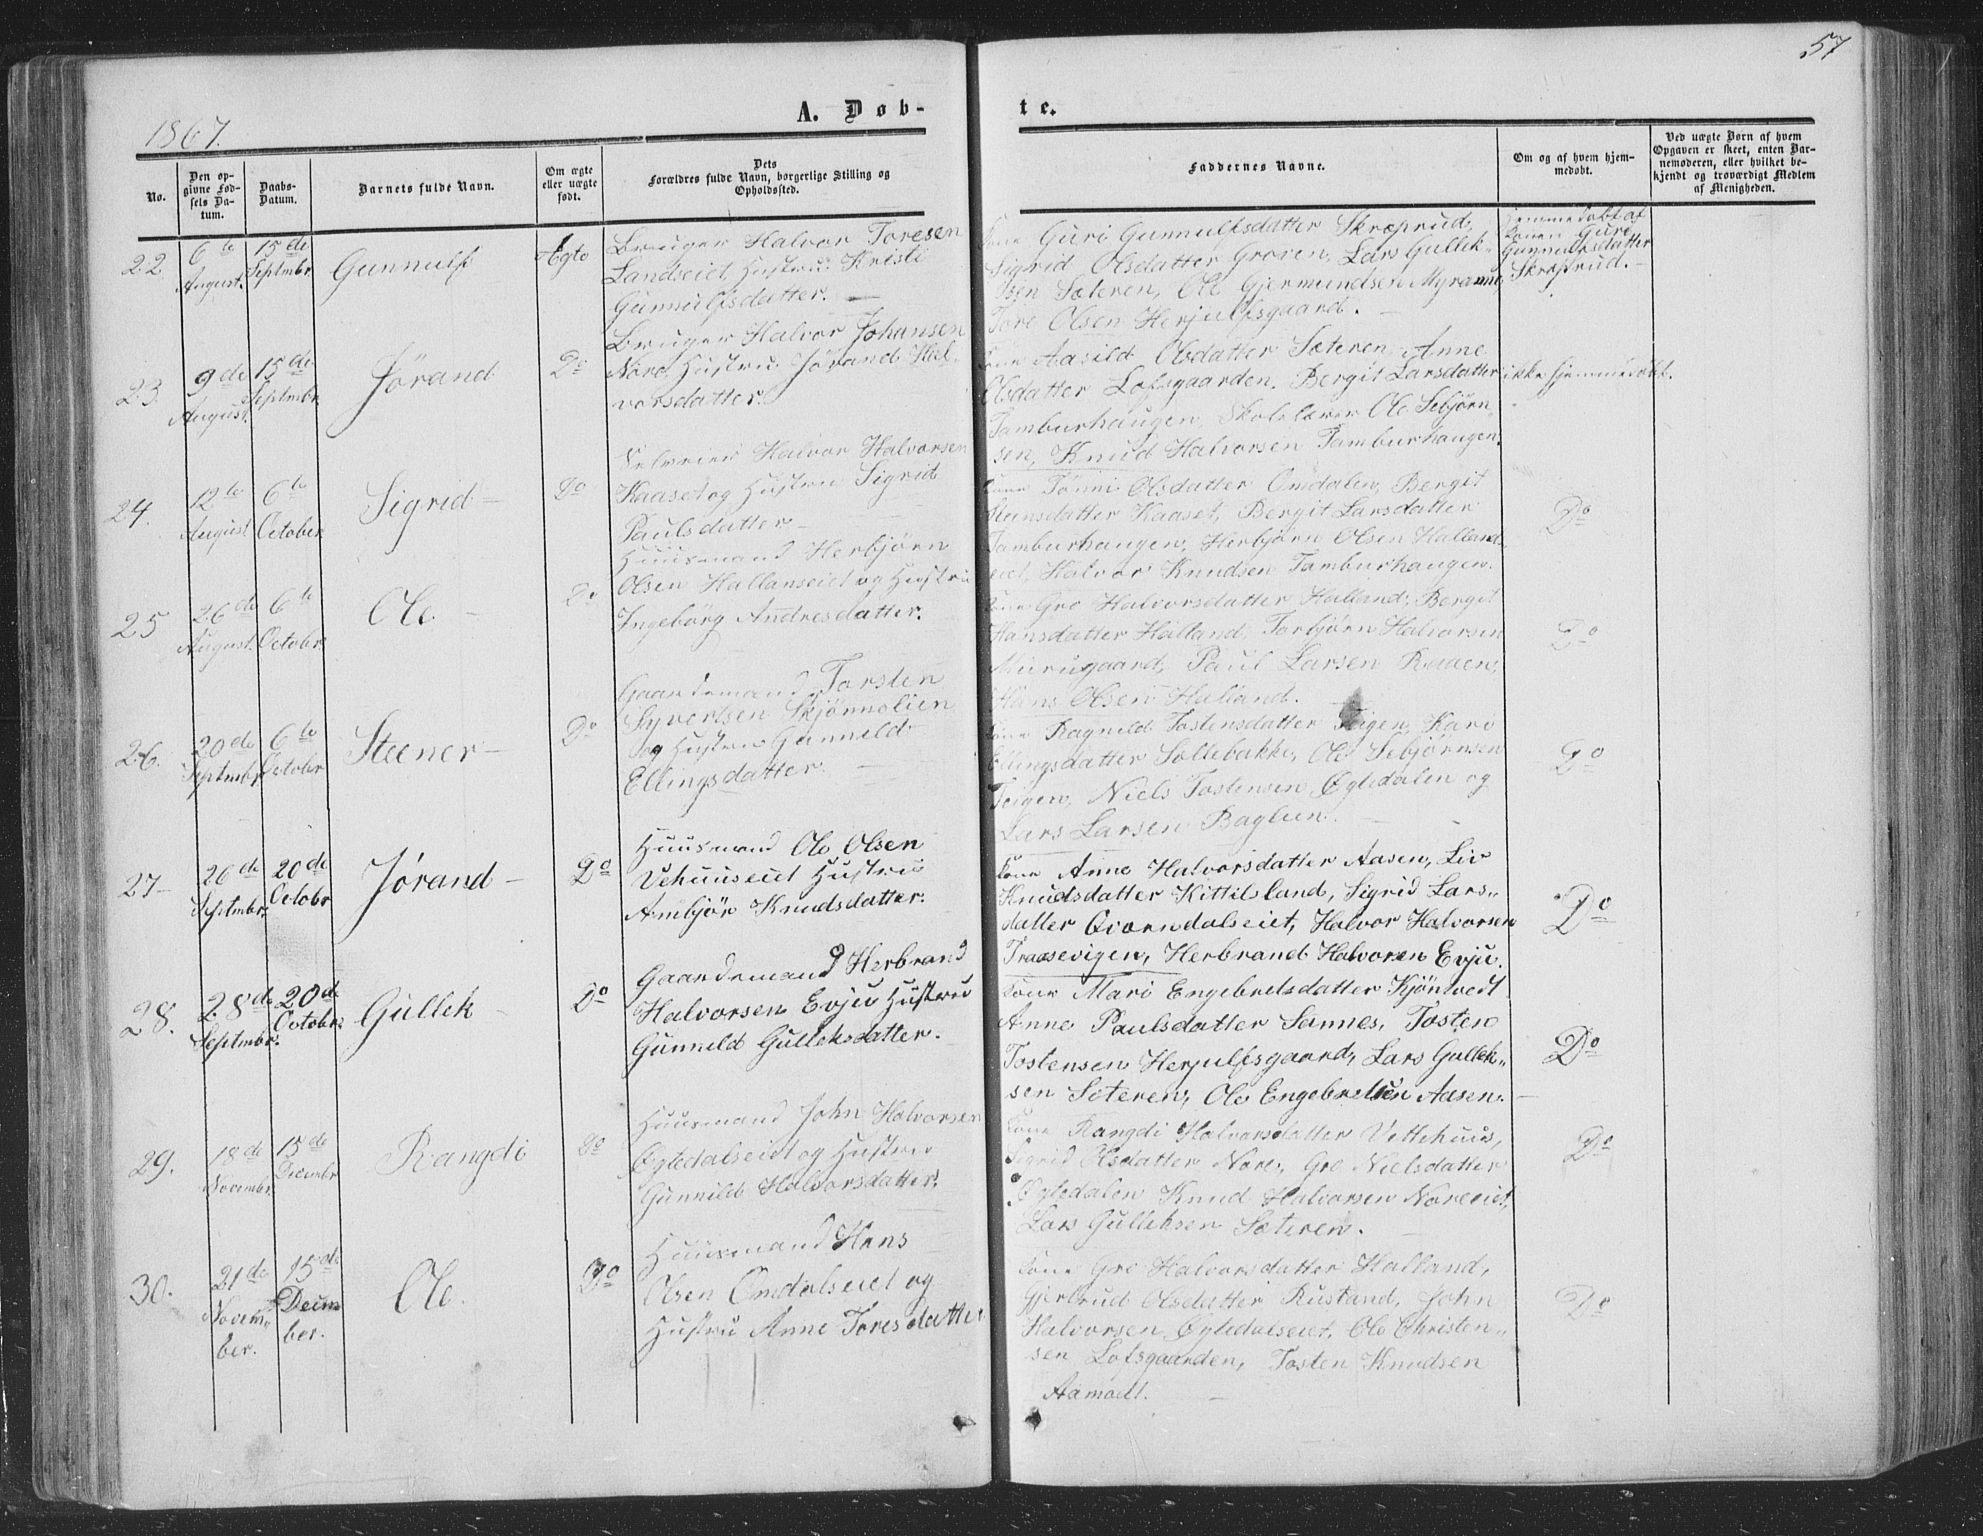 57
1867.
A. Døb-
te.
No.
Den op-
givne Fød-
sels Da-
tum.
Daabs-
Datum.
Barnets fulde Navn.
Om ægte
eller uægte
født.
Dets
Forældres fulde Navn, borgerlige Stilling og
Opholdssted.
Faddernes Navne.
Om og af hvem hjem-
medøbt.
Ved uægte Børn af hvem
Opgaven er skeet, enten Bar-
nemoderen, eller hvilket be-
kjendt og troværdigt Medlem
af Menigheden.
22.
6te
August.
15de
Septmbr.
Gunnulf
Ægte
Bruger Halvor Toresen
Landseiet Hustru Kristi
Gunnulfsdatter.
Kone Guri Gunnulfsdatter Skræprud,
Sigrid Olsdatter Groven, Lars Gullek-
sen Sæteren, Ole Gjermundsen Myranne,
Tore Olsen Herjulfsgaard.
Hjemmedøbt af
Konen Guri
Gunnulfsdatter
Skræprud.
23
9de
August.
15de
Septmbr.
Jørand
Do
Bruger Halvor Johansen
Nore Hustru Jørand Hal-
vorsdatter.
Kone Aasild Olsdatter Sæteren, Anne
Olsdatter Lofsgaarden, Bergit Larsdatter
Tamburhaugen, Skolelærer Ole Sebjørn-
sen, Knud Halvorsen Tamburhaugen.
ikke hjemmedøbt.
24.
12te
August
6te
October
Sigrid
Do
Selveier Halvor Halvorsen
Kaaset og Hustru Sigrid
Paulsdatter
Kone Tønni Olsdatter Omdalen, Bergit
Steensdatter Kaaset, Bergit Larsdatter
Tamburhaugen, Herbjørn Olsen Halland-
eiet, Halvor Knudsen Tamburhaugen.
Do
25
26de
August.
6te
Octobr.
Ole
Do
Huusmand Herbjørn
Olsen Hallanseiet og Hustru
Ingebørg Andresdatter.
Kone Gro Halvorsdatter Halland, Bergit
Hansdatter Halland, Torbjørn Halvorsen
Murugaard, Paul Larsen Raaen,
Hans Olsen Halland.
Do
26.
20de
Septmbr.
6te
Octobr
Steener
Do
Gaardmand Torsten
Syvertsen Skjønnelien
og Hustru Gunnild
Ellingsdatter.
Kone Ragnild Tostensdatter Teigen, Kari
Ellingsdatter Sollebakke, Ole Sebjørnsen
Teigen, Niels Tostensen Øgledalen og
Lars Larsen Baglien.
Do
27
26de
Septmbr.
20de
Octobr
Jørand
Do
Huusmand Ole Olsen
Vehuuseiet Hustru
Ambjør Knudsdatter.
Kone Anne Halvorsdatter Aasen, Liv
Knudsdatter Kittilsland, Sigrid Lars-
datter Qværndalseiet, Halvor Halvorsen
Traasevigen, Herbrand Halvorsen Evju.
Do
28.
28de
Septmbr.
20de
Octobr.
Gullek
Do
Gaardmand Herbrand
Halvorsen Evju Hustru
Gunnild Gulleksdatter.
Kone Mari Engebretsdatter Kjøntvedt
Anne Paulsdatter Sannes, Tosten
Tostensen Herjulfsgaard, Lars Gullek-
sen Sæteren, Ole Engebretsen Aasen.
Do
29.
18de
Novembr.
15de
Decembr
Rangdi
Do
Huusmand John Halvorsen
Øgledalseiet og Hustru
Gunnild Halvorsdatter.
Kone Rangdi Halvorsdatter Vettehuus,
Sigrid Olsdatter Nore, Gro Nielsdatter
Øgledalen Knud Halvorsen Noreeiet,
Lars Gulleksen Sæteren.
Do
30.
21de
Novem-
ber.
15de
Decem
ber.
Ole.
Do
Huusmand Hans
Olsen Omdalseiet og
Hustru Anne Toresdatter
Kone Gro Halvorsdatter Halland,
Gjertrud Olsdatter Rustand, John
Halvorsen Øgledalseiet, Ole Christen-
sen Lofsgaarden, Tosten Knudsen
Aamodt.
Do